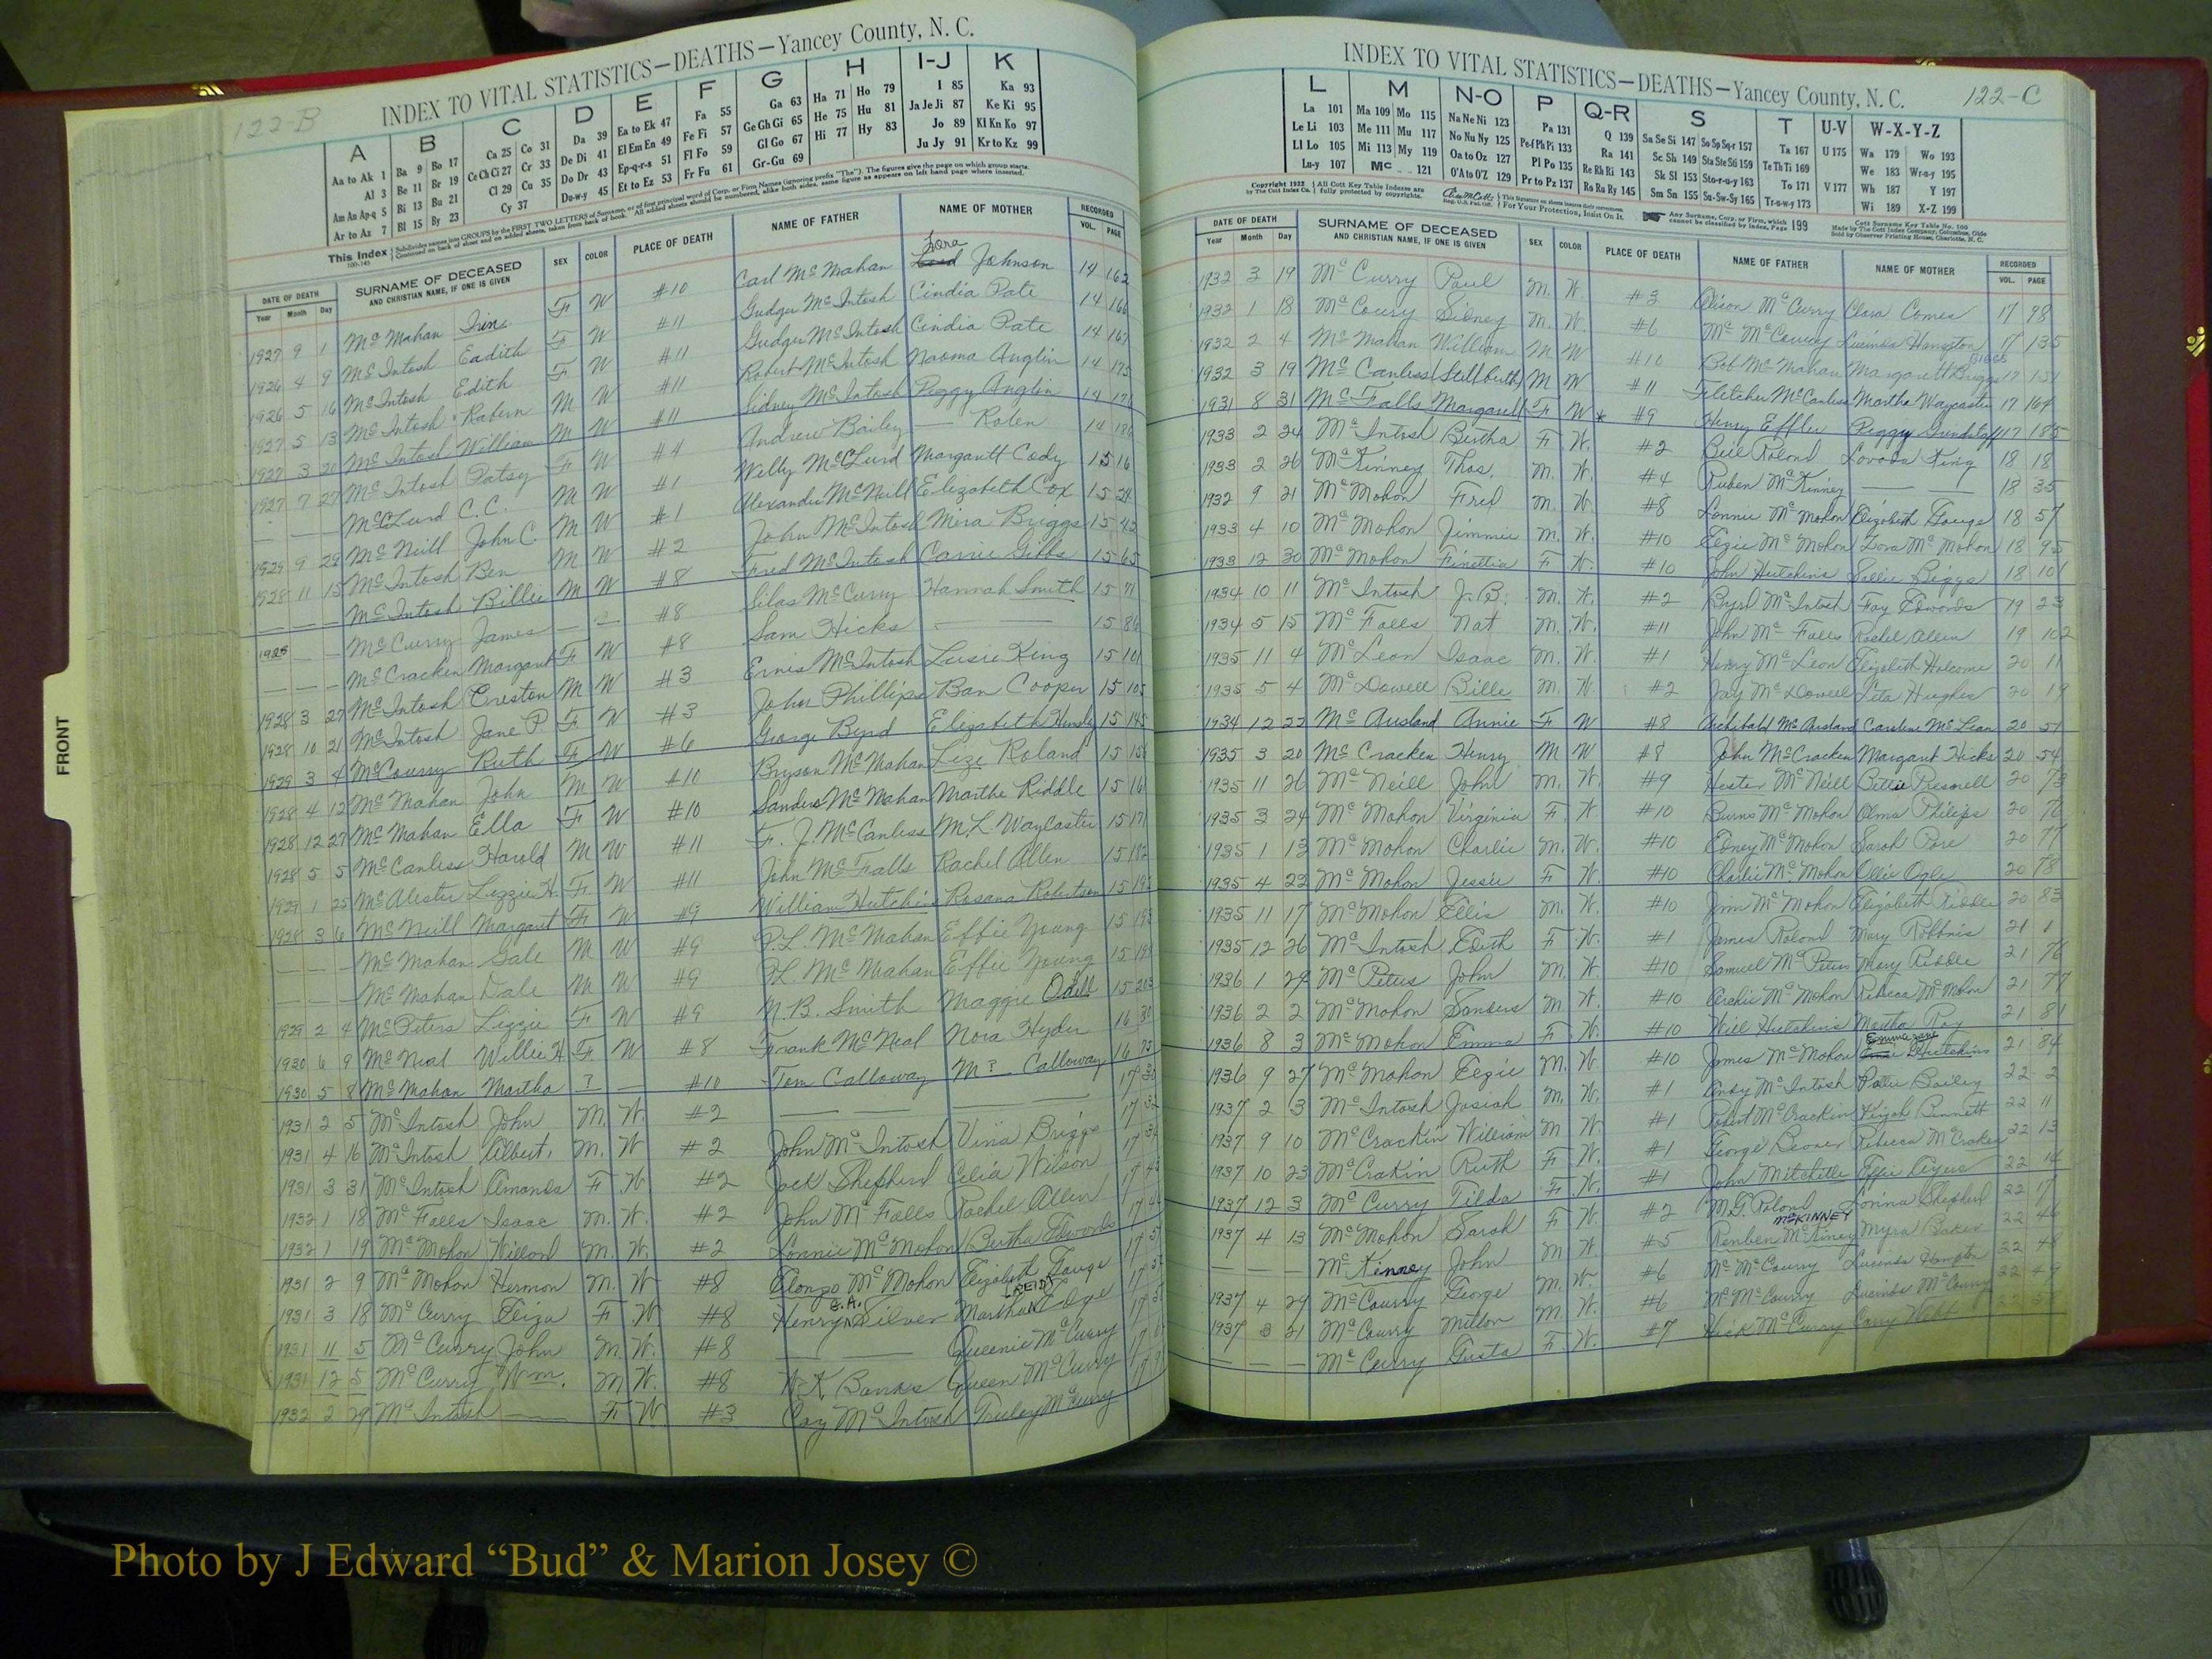 122-B
INDEX TO VITAL STATISTICS—DEATHS—Yancey County, N. C.
A B C D E F G H I-J K
Aa to Ak 1 Ba 9 Bo 17 Ca 25 Co 31 Da 39 Ea to Ek 47 Fa 55 Ga 63 Ha 71 Ho 79 I 85 Ka 93
Al 3 Be 11 Br 19 Ce Ch Ci 27 Cr 33 De Di 41 El Em En 49 Fe Fi 57 Ge Gh Gi 65 He 75 Hu 81 Ja Je Ji 87 Ke Ki 95
Am An Ap-q 5 Bi 13 Bu 21 Cl 29 Cu 35 Do Dr 43 Ep-q-r-s 51 Fl Fo 59 Gl Go 67 Hi 77 Hy 83 Jo 89 Kl Kn Ko 97
Ar to Az 7 Bl 15 By 23 Cy 37 Du-w-y 45 Et to Ez 53 Fr Fu 61 Gr-Gu 69 Ju Jy 91 Kr to Kz 99
This Index
DATE OF DEATH SURNAME OF DECEASED SEX COLOR PLACE OF DEATH NAME OF FATHER NAME OF MOTHER RECORDED
Year Month Day AND CHRISTIAN NAME, IF ONE IS GIVEN VOL. PAGE
1927 9 1 McMahan Irin F W #10 Carl McMahan Zora Johnson 14 162
1926 4 9 McIntosh Eadith F W #11 Gudger McIntosh Cindia Pate 14 166
1926 5 16 McIntosh Edith F W #11 Gudger McIntosh Cindia Pate 14 167
1927 5 13 McIntosh Robern M W #11 Robert McIntosh Naoma Anglin 14 175
1927 3 20 McIntosh William M W #11 Sidney McIntosh Peggy Anglin 14
1927 7 27 McIntosh Patsy F W #4 Andrew Bailey — Rolen 14
— — — McClurd C.C. M W #1 Welly McClurd Margarett Cody 15 16
1929 9 29 McNeill John C. M W #1 Alexander McNeill Elizabeth Cox 15 24
1928 11 15 McIntosh Ben M W #2 John McIntosh Mira Briggs 15 42
— — — McIntosh Billie M W #8 Fred McIntosh Carrie Gibbs 15 65
1928 — — McCurry James — — #8 Silas McCurry Hannah Smith 15 71
— — — McCracken Margaret F W #8 Sam Hicks — 15 86
1928 3 27 McIntosh Creston M W #3 Ernis McIntosh Lusie King 15 101
1928 10 21 McIntosh Jane P. F W #3 John Phillips Ban Cooper 15 105
1929 3 4 McCourry Ruth F W #6 George Byrd Elizabeth Hensley 15 145
1928 4 12 McMahan John M W #10 Bryson McMahan Lize Roland 15
1928 12 27 McMahan Ella F W #10 Sanders McMahan Marthe Riddle 15
1928 5 5 McCanless Harold M W #11 F. J. McCanless M.L. Waycaster 15
1929 1 25 McAlester Lizzie H. F W #11 John McFalls Rachel Allen 15
1928 3 6 McNeill Margaret F W #9 William Hutchins Rosana Robertson 15
— — — McMahan Gale M W #9 P.L. McMahan Effie Young 15
— — — McMahan Dale M W #9 P.L. McMahan Effie Young 15
1929 2 4 McPeters Lizzie F W #9 N.B. Smith Maggie Odell 15 203
1930 6 9 McNeal Willie H. F W #8 Frank McNeal Nora Hyder 16
1930 5 8 McMahan Martha ? — #10 Tom Calloway M? Calloway 16
1931 2 5 McIntosh John M. W. #2 — — 17
1931 4 16 McIntosh Albert, M. W #2 John McIntosh Vina Briggs 17
1931 3 31 McIntosh Amanda F W #2 Jack Shepherd Celia Wilson 17
1932 1 18 McFalls Isaac M. W. #2 John McFalls Rachel Allen 17
1932 1 19 McMohon Willard M. W. #2 Lonnie McMohon Bertha Edwards 17
1931 2 9 McMohon Hermon M. W #8 Elonzo McMohon Elizabeth Gouge 17
1931 3 18 McCurry Eliza F W #8 Henry E.A. Silver Martha REID 17
1931 11 5 McCurry John M. W. #8 — — Queenie McCurry 17
1931 12 5 McCurry Wm. M W. #8 W.K Banks Queen McCurry 17
1932 2 29 McIntosh — F W #3 Coy McIntosh Truley McCurry
FRONT
122-C
INDEX TO VITAL STATISTICS—DEATHS—Yancey County, N. C.
L M N-O P Q-R S T U-V W-X-Y-Z
La 101 Ma 109 Mo 115 Na Ne Ni 123 Pa 131 Q 139 Sa Se Si 147 So Sp Sq-r 157 Ta 167 U 175 Wa 179 Wo 193
Le Li 103 Me 111 Mu 117 No Nu Ny 125 Pe-f Ph Pi 133 Ra 141 Sc Sh 149 Sta Ste Sti 159 Te Th Ti 169 We 183 Wr-u-y 195
Ll Lo 105 Mi 113 My 119 Oa to Oz 127 Pl Po 135 Re Rh Ri 143 Sk Sl 153 Sto-r-u-y 163 To 171 V 177 Wh 187 Y 197
Lu-y 107 Mc 121 O'A to O'Z 129 Pr to Pz 137 Ro Ru Ry 145 Sm Sn 155 Su-Sw-Sy 165 Tr-u-w-y 173 Wi 189 X-Z 199
DATE OF DEATH SURNAME OF DECEASED SEX COLOR PLACE OF DEATH NAME OF FATHER NAME OF MOTHER RECORDED
Year Month Day AND CHRISTIAN NAME, IF ONE IS GIVEN VOL. PAGE
1932 3 19 McCurry Paul M. W. #3 McCurry Clara Comea 17 98
1932 1 18 McCoury Sidney M. W. #6 Mc McCoury Lucinda Hampton 17 135
1932 2 4 McMahan William M W #10 Bob McMahan Margarett Briggs 17 151
1932 3 19 McCanless (Stillbirth) M W #11 Fletcher McCanless Martha Waycaster 17 164
1931 8 31 McFalls Margaret F W * #9 Henry Effler Peggy Grindstaff 17 185
1933 2 24 McIntosh Bertha F W. #2 Bill Roland Lovada King 18 18
1933 2 26 McKinney Thos. M. W. #4 Ruben McKinney — 18 35
1932 9 21 McMohon Fred M. W. #8 Lonnie McMohon Elizabeth Gouge 18 57
1933 4 10 McMohon Jimmie M. W. #10 Ezie McMohon Zora McMohon 18 95
1933 12 30 McMohon Finettia F W. #10 John Hutchins Sallie Biggs 18 101
1934 10 11 McIntosh J.B. M. W. #2 Byrd McIntosh Fay Edwards 19 23
1934 5 15 McFalls Nat M. W. #11 John McFalls Rachel Allen 19 102
1935 11 4 McLean Isaac M. W. #1 Henry McLean Elizabeth Holcome 20 11
1935 5 4 McDowell Bille M. W. #2 Jay McDowell Leta Hughes 20 19
1934 12 22 McAusland Annie F W #8 Archibald McAusland Caroline McLean 20 51
1935 3 20 McCracken Henry M W #8 John McCracken Margaret Hicks 20 54
1935 11 26 McNeill John M. W. #9 Hester McNeill Bettie Presnell 20 73
1935 3 24 McMohon Virginia F. W. #10 Burns McMohon Olma Philips 20 76
1935 1 13 McMohon Charlie M. W. #10 Edney McMohon Sarah 20 77
1935 4 22 McMohon Jessie F W. #10 Charlie McMohon Ollie Ogle 20 78
1935 11 17 McMohon Ellis M. W. #10 Jim McMohon Elizabeth Riddle 20 83
1935 12 26 McIntosh Edith F W. #1 James Roland Mary Robbnis 21 1
1936 1 29 McPeters John M. W. #10 Samuel McPeters Mary Riddle 21 76
1936 2 2 McMohon Sanders M W. #10 Archie McMohon Rebeca McMohon 21 77
1936 8 3 McMohon Emma F W. #10 Will Hutchins Martha Ray 21 81
1936 9 27 McMahon Ezie M. W. #10 James McMohon Hutchins 21 84
1937 2 3 McIntosh Josiah M. W. #1 Andy McIntosh Bailey 22 2
1937 9 10 McCrackin William M W. #1 Robert McCrackin Bennett 22 11
1937 10 23 McCrakin Ruth F W. #1 George Rebecca McCracken 22 13
1937 12 3 McCurry Tilda F W. #1 John Mitchelle Effie Ayers 22
1937 4 13 McMohon Sarah F W. #2 M.G. Roland Shepherd 22 17
— — — McKinney John M W. #5 Reuben McKiney McKINNEY Myra Baker 22
1937 4 29 McCourry George M. W. #6 Mc McCourry Lucinda Hampton 22 48
1937 3 21 McCourry Milton M. W. #6 Mc McCourry Lucinda McCourry 22 49
— — — McCurry Gusta F. W. #7 McCurry Webb
Photo by J Edward “Bud” & Marion Josey ©